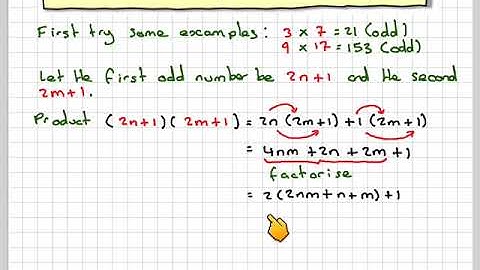 First try some examples: 3 × 7 = 21 (odd)
9 × 17 = 153 (odd)
Let the first odd number be 2n+1 and the second
2m+1.
Product (2n+1)(2m+1) = 2n(2m+1)+1(2m+1)
= 4nm +2n + 2m +1
factorise
= 2(2nm+n+m)+1